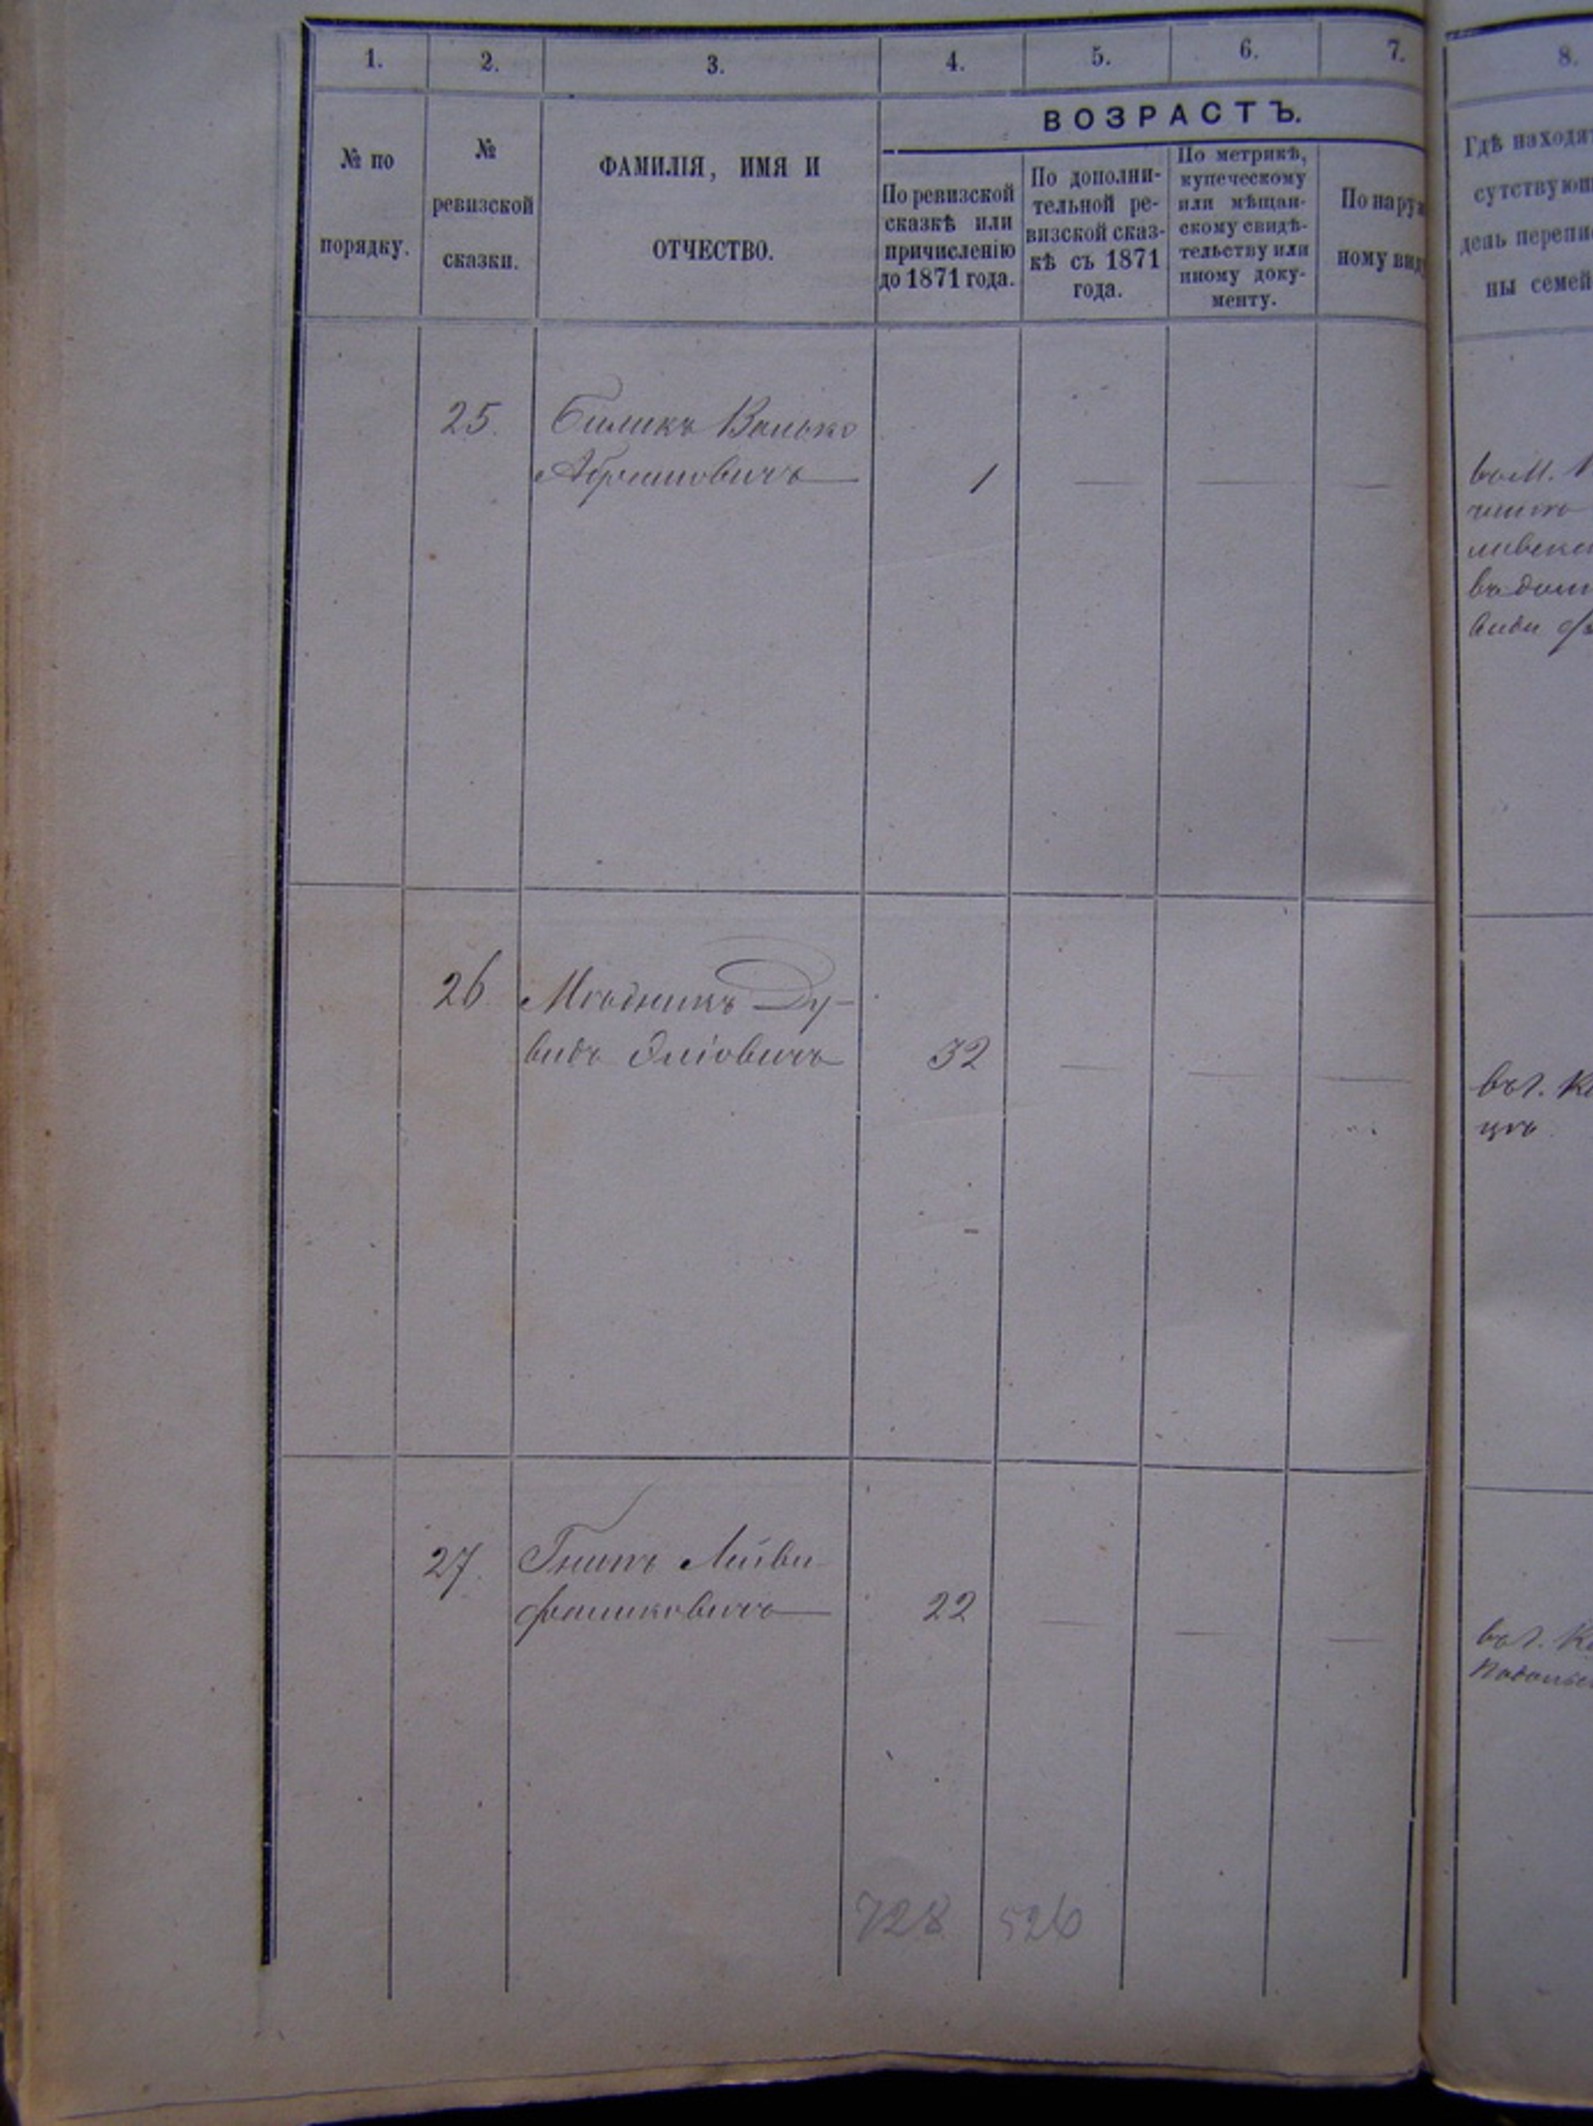 1. 2. 3. 4. 5. 6. 7. 8.
ВОЗРАСТЪ.
№ по
порядку.
№
ревизской
сказки.
ФАМИЛІЯ, ИМЯ И
ОТЧЕСТВО.
По ревизской
сказкѣ или
причисленію
до 1871 года.
По дополни-
тельной ре-
визской сказ-
кѣ съ 1871
года.
По метрикѣ,
купеческому
или мѣщан-
скому свидѣ-
тельству или
иному доку-
менту.
По наруж
ному вид
Гдѣ находя
сутствующ
день перепи
ны семей
25. БиликъВанько
Абрамовичъ 1
26 Дy-
видъ Эліовичъ 32
27. Гнипъ Лейви
22
въ г. К
цѣ
въ г. К
728 526